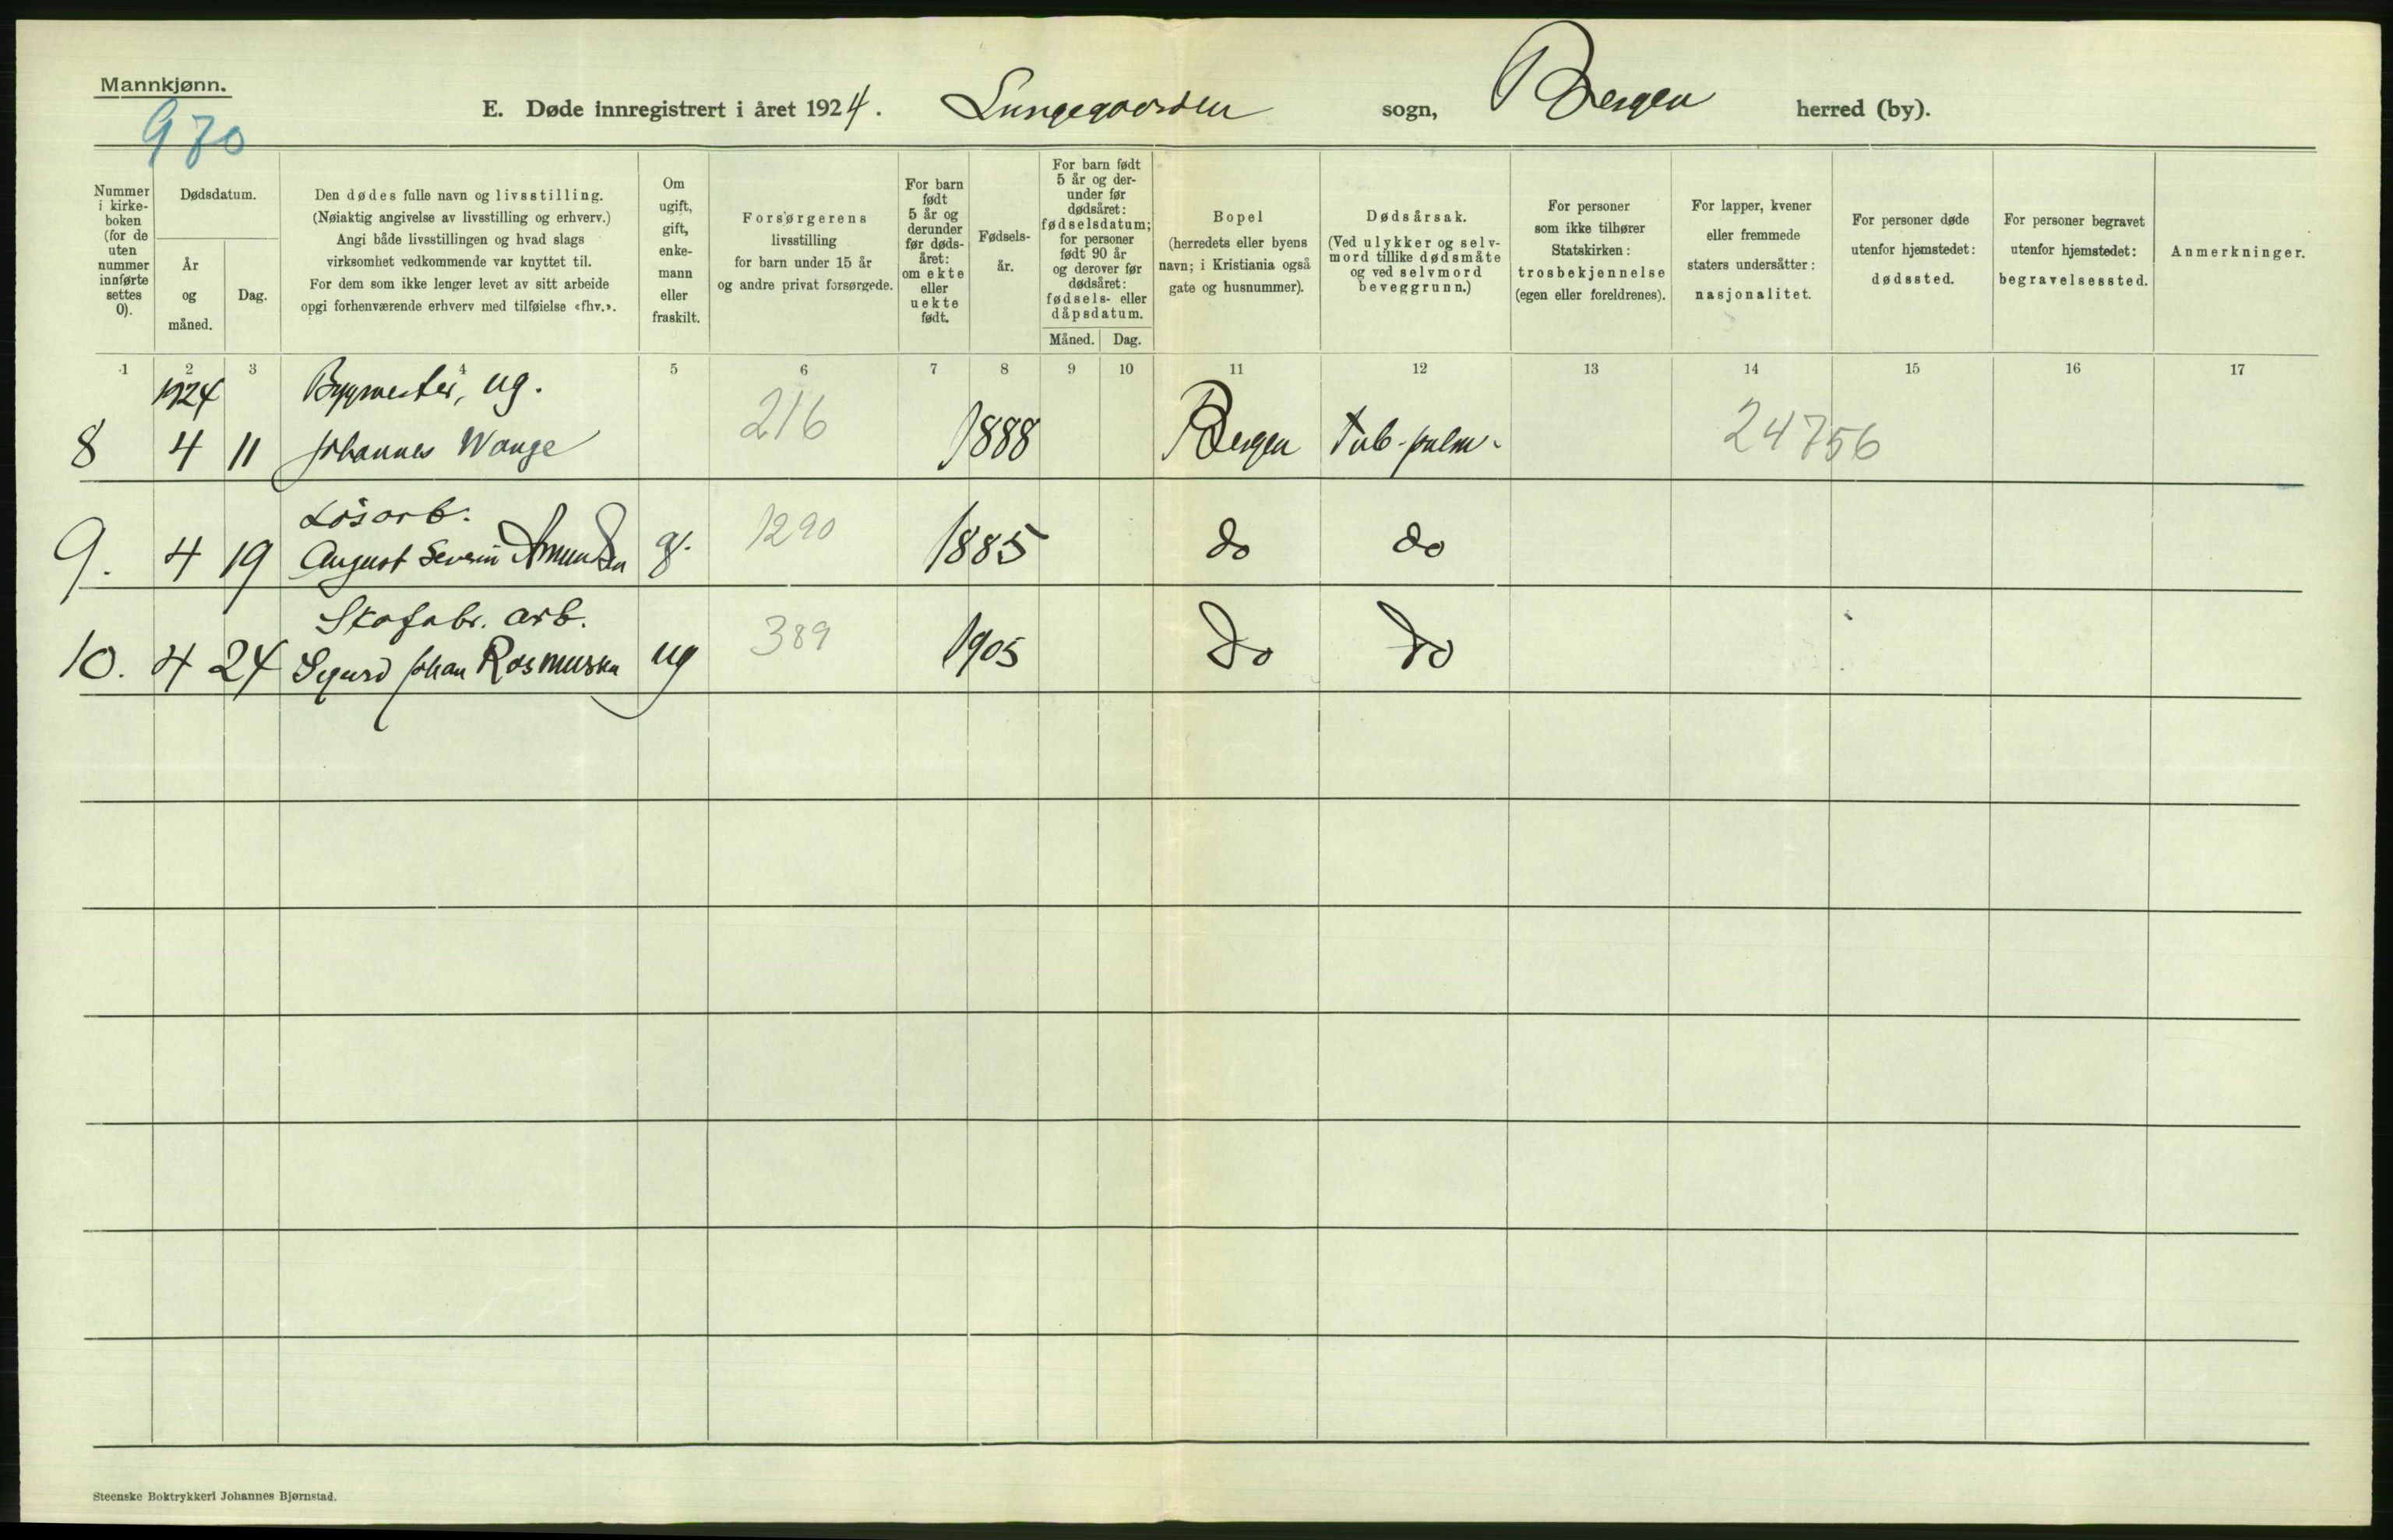 Mannkjønn.
970
E. Døde innregistrert i året 1924. Lungegaarden sogn, Bergen herred (by).
Nummer i kirke-boken (for de uten nummer innførte settes 0).
Dødsdatum.
År og måned.
Dag.
Den dødes fulle navn og livsstilling.
(Nøiaktig angivelse av livsstilling og erhverv.)
Angi både livsstillingen og hvad slags
virksomhet vedkommende var knyttet til.
For dem som ikke lenger levet av sitt arbeide
opgi forhenværende erhverv med tilføielse «fhv.».
Om ugift, gift, enke-mann eller fraskilt.
Forsørgerens
livsstilling
for barn under 15 år
og andre privat forsørgede.
For barn født 5 år og derunder før døds-året: om ekte eller uekte født.
Fødsels-år.
For barn født 5 år og der-under før dødsåret: fødselsdatum; for personer født 90 år og derover før dødsåret: fødsels- eller dåpsdatum.
Måned. Dag.
Bopel
(herredets eller byens
navn; i Kristiania også
gate og husnummer).
Dødsårsak.
(Ved ulykker og selv-
mord tillike dødsmåte
og ved selvmord
beveggrunn.)
For personer
som ikke tilhører
Statskirken:
trosbekjennelse
(egen eller foreldrenes).
For lapper, kvener
eller fremmede
staters undersåtter:
nasjonalitet.
For personer døde
utenfor hjemstedet:
dødssted.
For personer begravet
utenfor hjemstedet:
begravelsessted.
Anmerkninger.
1 2 3 4 5 6 7 8 9 10 11 12 13 14 15 16 17
1924 Bygmester, ug.
8 4 11 Johannes Wange 216 1888 Bergen Tub. pulm. 24756
Løsarb.
9. 4 19 August Severin Amundsen g. 1290 1885 do do
Skofabr. arb.
10. 4 24 Sigurd Johan Rasmussen ug 389 1905 Do Do
Steenske Boktrykkeri Johannes Bjørnstad.